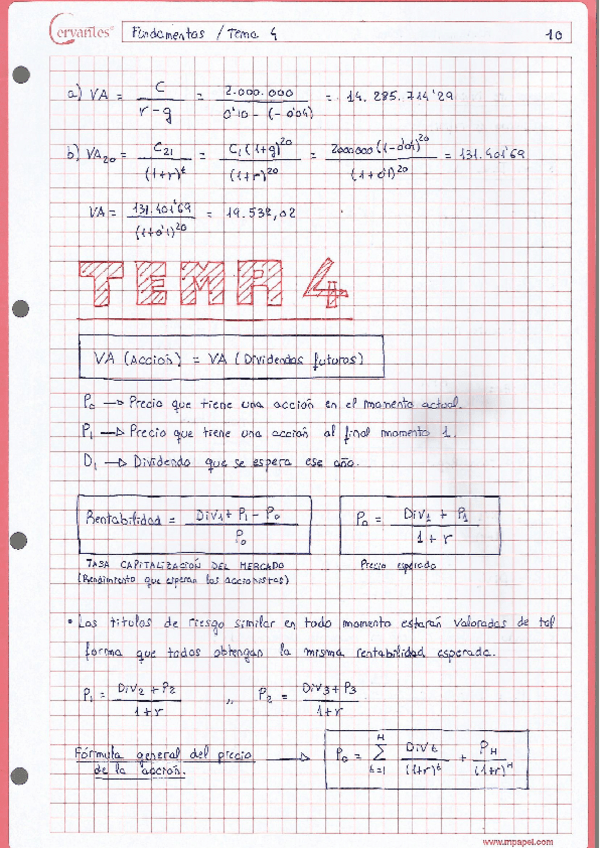 Cervantes® Fundamentos / Tema 4 10
a) VA = C / (r - g) = 2.000.000 / (0'10 - (-0'04)) = 14.285.714'29
b) VA20 = C21 / (1+r)^t = C1(1+g)^20 / (1+r)^20 = 2000000(1-0'04)^20 / (1+0'1)^20 = 131.401'69
VA = 131.401'69 / (1+0'1)^20 = 19.532,02
TEMA 4
VA (Acción) = VA (Dividendos futuros)
P0 → Precio que tiene una acción en el momento actual.
P1 → Precio que tiene una acción al final momento 1.
D1 → Dividendo que se espera ese año.
Rentabilidad = (Div1 + P1 - P0) / P0 P0 = (Div1 + P1) / (1+r)
TASA CAPITALIZACIÓN DEL MERCADO Precio esperado
(Rendimiento que esperan los accionistas)
• Los titulos de riesgo similar en todo momento estarán valorados de tal
forma que todos obtengan la misma rentabilidad esperada.
P1 = (Div2 + P2) / (1+r) ,, P2 = (Div3 + P3) / (1+r)
Fórmula general del precio → P0 = Σ(t=1, H) Divt / (1+r)^t + PH / (1+r)^H
de la acción.
www.mpapel.com